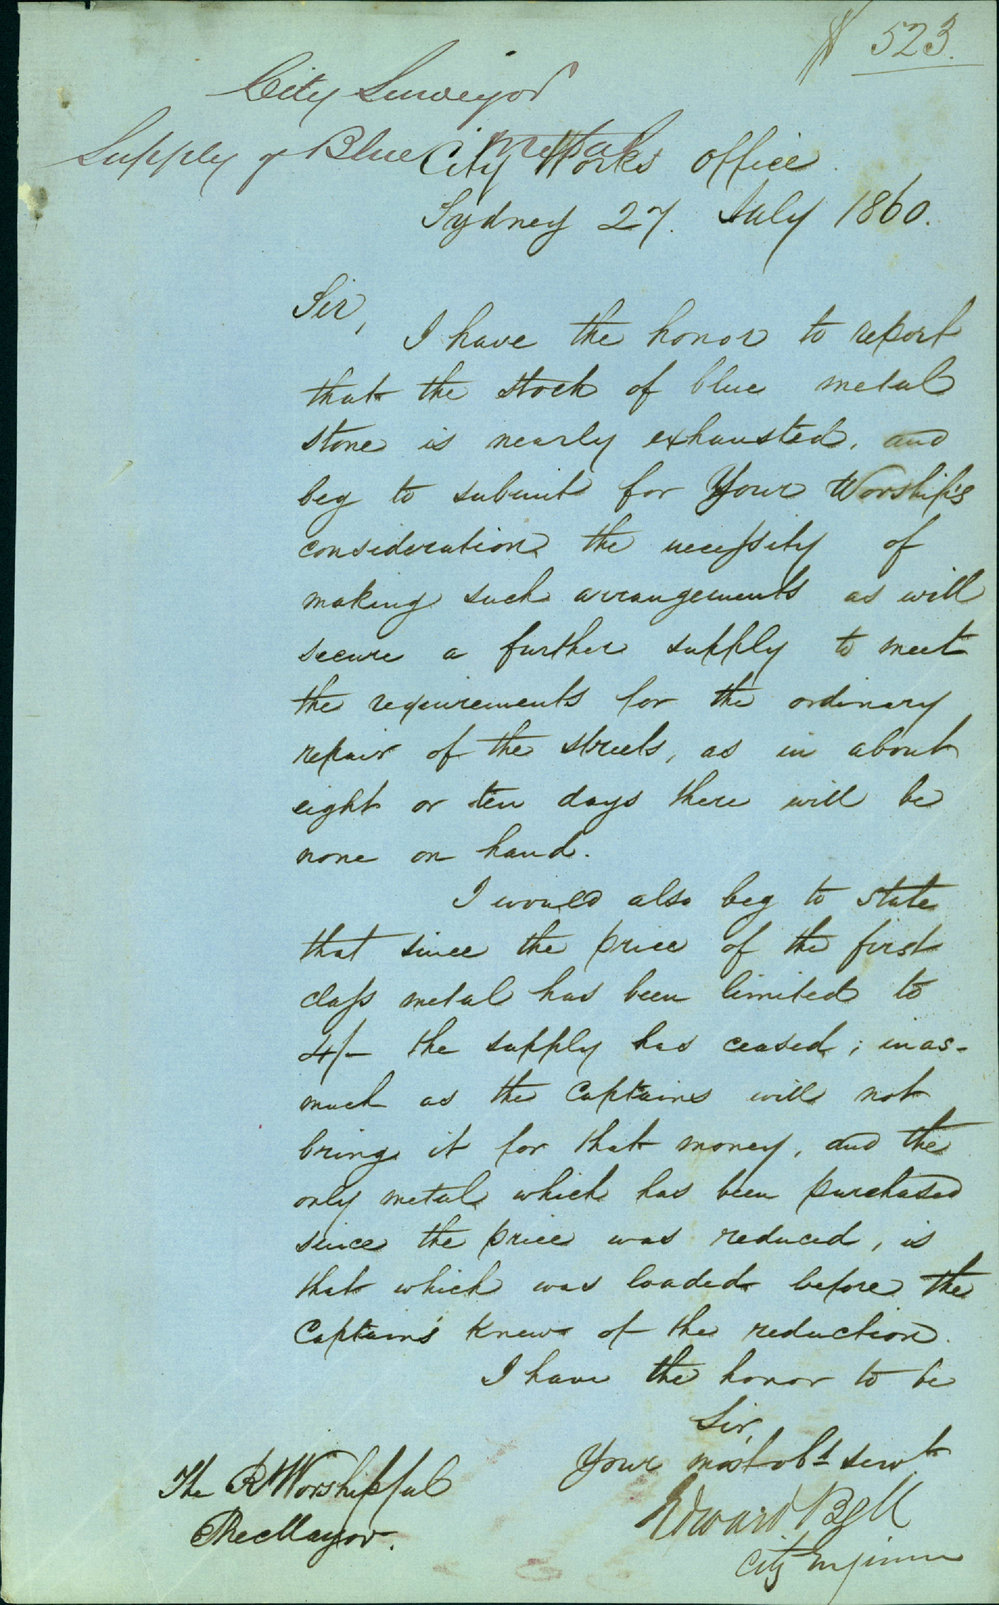 N 523.
City Surveyor
Supply of Blue metal
City Works Office
Sydney 27. July 1860.
Sir,
I have the honor to report
that the stock of blue metal
stone is nearly exhausted, and
beg to submit for Your Worship's
consideration the necessity of
making such arrangements as will
secure a further supply to meet
the requirements for the ordinary
repair of the streets, as in about
eight or ten days there will be
none on hand.
I would also beg to state
that since the price of the first
class metal has been limited to
4/- the supply has ceased; inas-
much as the Captains will not
bring it for that money, and the
only metal which has been purchased
since the price was reduced, is
that which was loaded before the
Captain's knew of the reduction.
I have the honor to be
Sir,
Your most obt servt
Edward Bell
City Engineer
The Rt Worshipful
The Mayor.